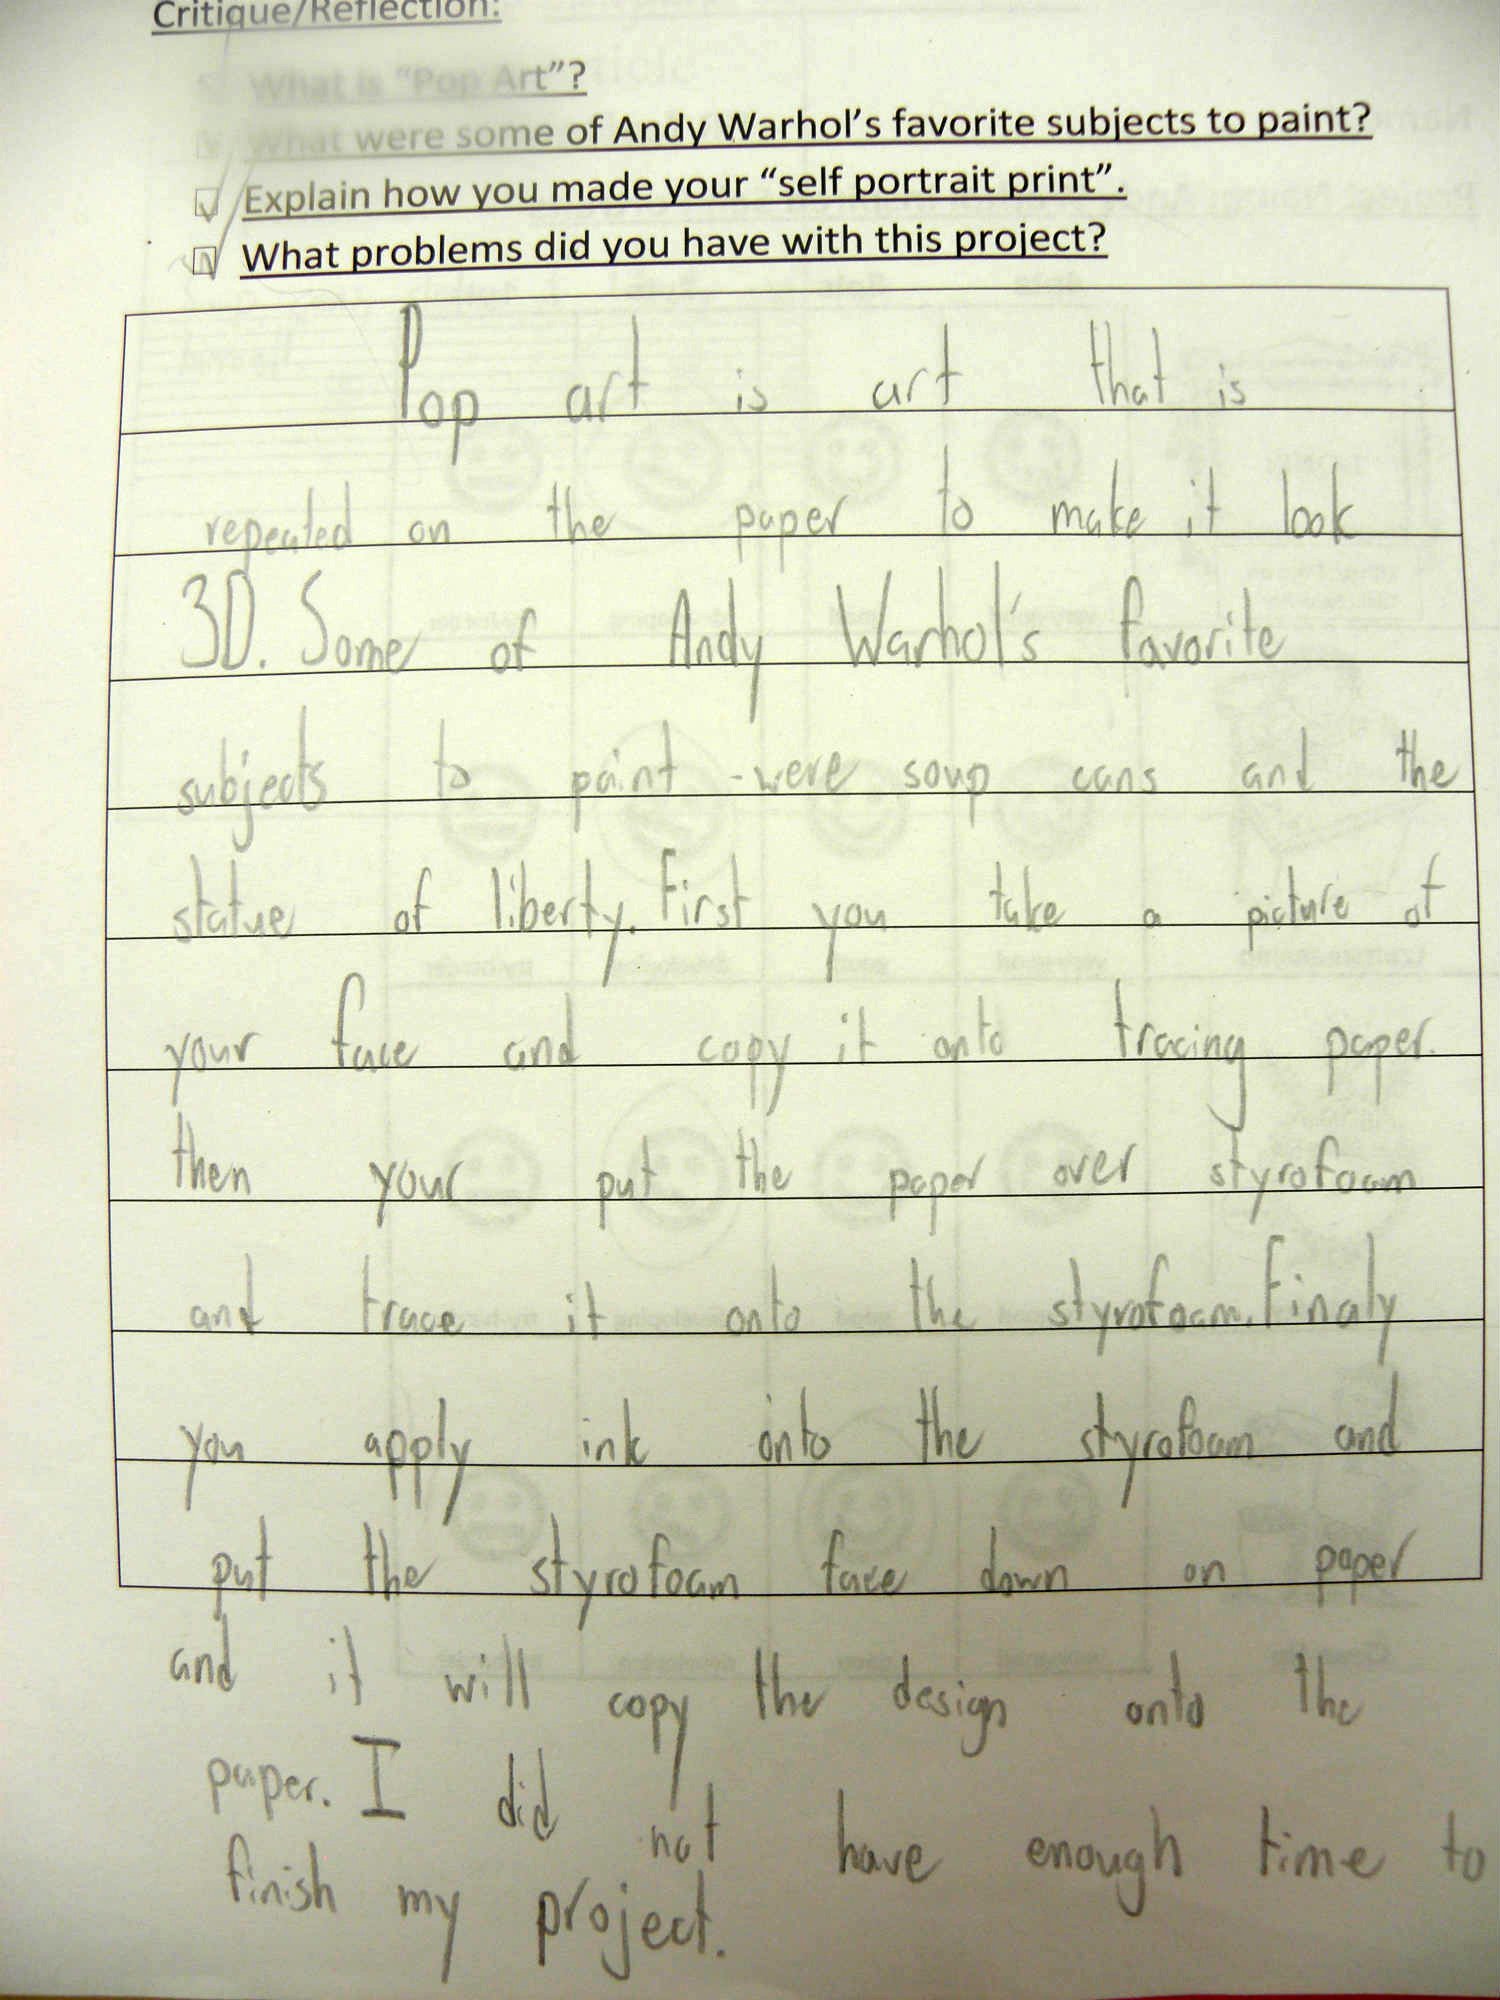 Critique/Reflection:
What is "Pop Art"?
What were some of Andy Warhol's favorite subjects to paint?
Explain how you made your "self portrait print".
What problems did you have with this project?
Pop art is art that is
repeated on the paper to make it look
3D. Some of Andy Warhol's favorite
subjects to paint -were soup cans and the
statue of liberty. First you take a picture of
your face and copy it onto tracing paper.
then your put the paper over styrofoam
and trace it onto the styrofoam. Finaly
you apply ink onto the styrofoam and
put the styrofoam face down on paper
and it will copy the design onto the
paper. I did not have enough time to
finish my project.